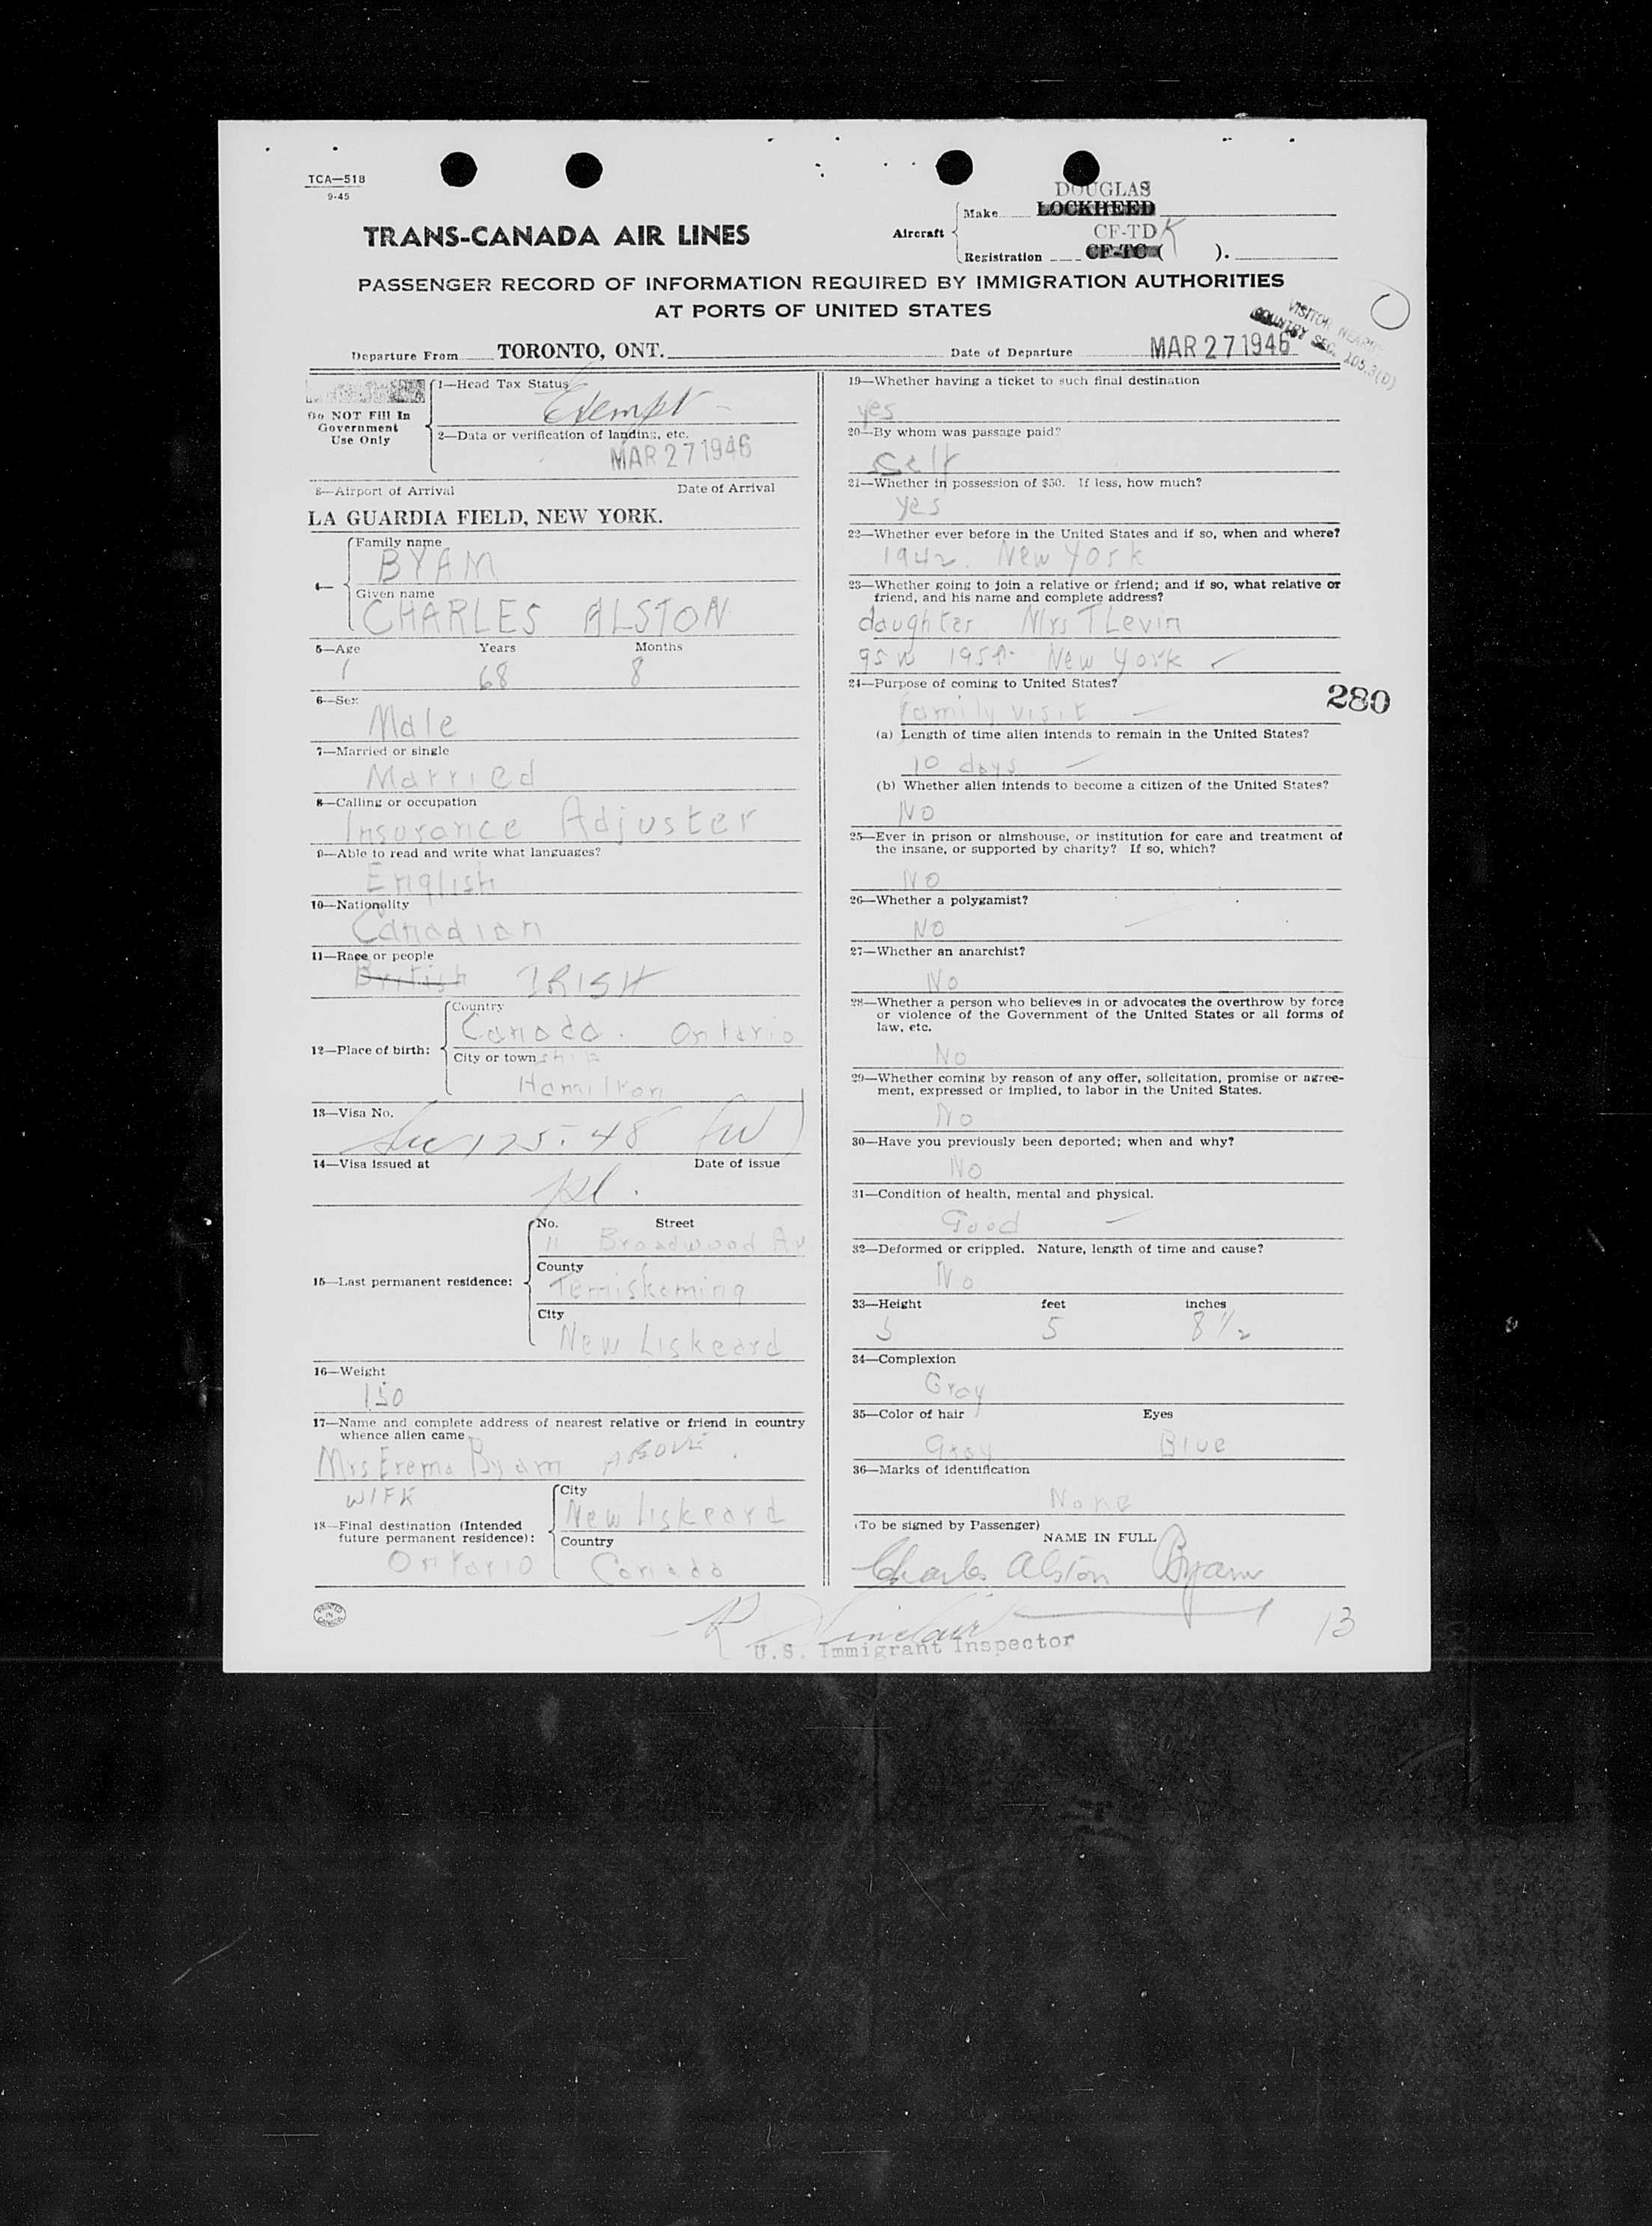 TCA—518
9-45
DOUGLAS
Aircraft
Make LOCKHEED
CF-TD K
Registration CF-TC ( ).
TRANS-CANADA AIR LINES
PASSENGER RECORD OF INFORMATION REQUIRED BY IMMIGRATION AUTHORITIES
AT PORTS OF UNITED STATES
VISITOR
COUNTRY SEC. 105.3(D)
Departure From TORONTO, ONT.
Date of Departure MAR 27 1946
Do NOT Fill In
Government
Use Only
1—Head Tax Status
Exempt
2—Data or verification of landing, etc.
MAR 27 1946
3—Airport of Arrival Date of Arrival
LA GUARDIA FIELD, NEW YORK.
4—
Family name
BYAM
Given name
CHARLES ALSTON
5—Age Years Months
68 8
6—Sex
Male
7—Married or single
Married
8—Calling or occupation
Insurance Adjuster
9—Able to read and write what languages?
English
10—Nationality
Canadian
11—Race or people
British IRISH
12—Place of birth:
Country
Canada. Ontario
City or town
Hamilton
13—Visa No.
Sec 125.48
14—Visa issued at Date of issue
15—Last permanent residence:
No. Street
11 Broadwood Av
County
Temiskaming
City
New Liskeard
16—Weight
150
17—Name and complete address of nearest relative or friend in country
whence alien came
Mrs Erema Byam ABOVE.
WIFE
18—Final destination (Intended
future permanent residence):
Ontario
City
New Liskeard
Country
Canada
PRINTED
IN
CANADA
19—Whether having a ticket to such final destination
yes
20—By whom was passage paid?
Self
21—Whether in possession of $50. If less, how much?
yes
22—Whether ever before in the United States and if so, when and where?
1942. New York
23—Whether going to join a relative or friend; and if so, what relative or
friend, and his name and complete address?
daughter Mrs T Levin
95 W 195 New York
24—Purpose of coming to United States?
family visit
280
(a) Length of time alien intends to remain in the United States?
10 days
(b) Whether alien intends to become a citizen of the United States?
No
25—Ever in prison or almshouse, or institution for care and treatment of
the insane, or supported by charity? If so, which?
No
26—Whether a polygamist?
No
27—Whether an anarchist?
No
28—Whether a person who believes in or advocates the overthrow by force
or violence of the Government of the United States or all forms of
law, etc.
No
29—Whether coming by reason of any offer, solicitation, promise or agree-
ment, expressed or implied, to labor in the United States.
No
30—Have you previously been deported; when and why?
No
31—Condition of health, mental and physical.
Good
32—Deformed or crippled. Nature, length of time and cause?
No
33—Height feet inches
5 5 8 1/2
34—Complexion
Gray
35—Color of hair Eyes
Gray Blue
36—Marks of identification
None
(To be signed by Passenger)
NAME IN FULL
Charles Alston Byam
R Sinclair
U.S. Immigrant Inspector
13